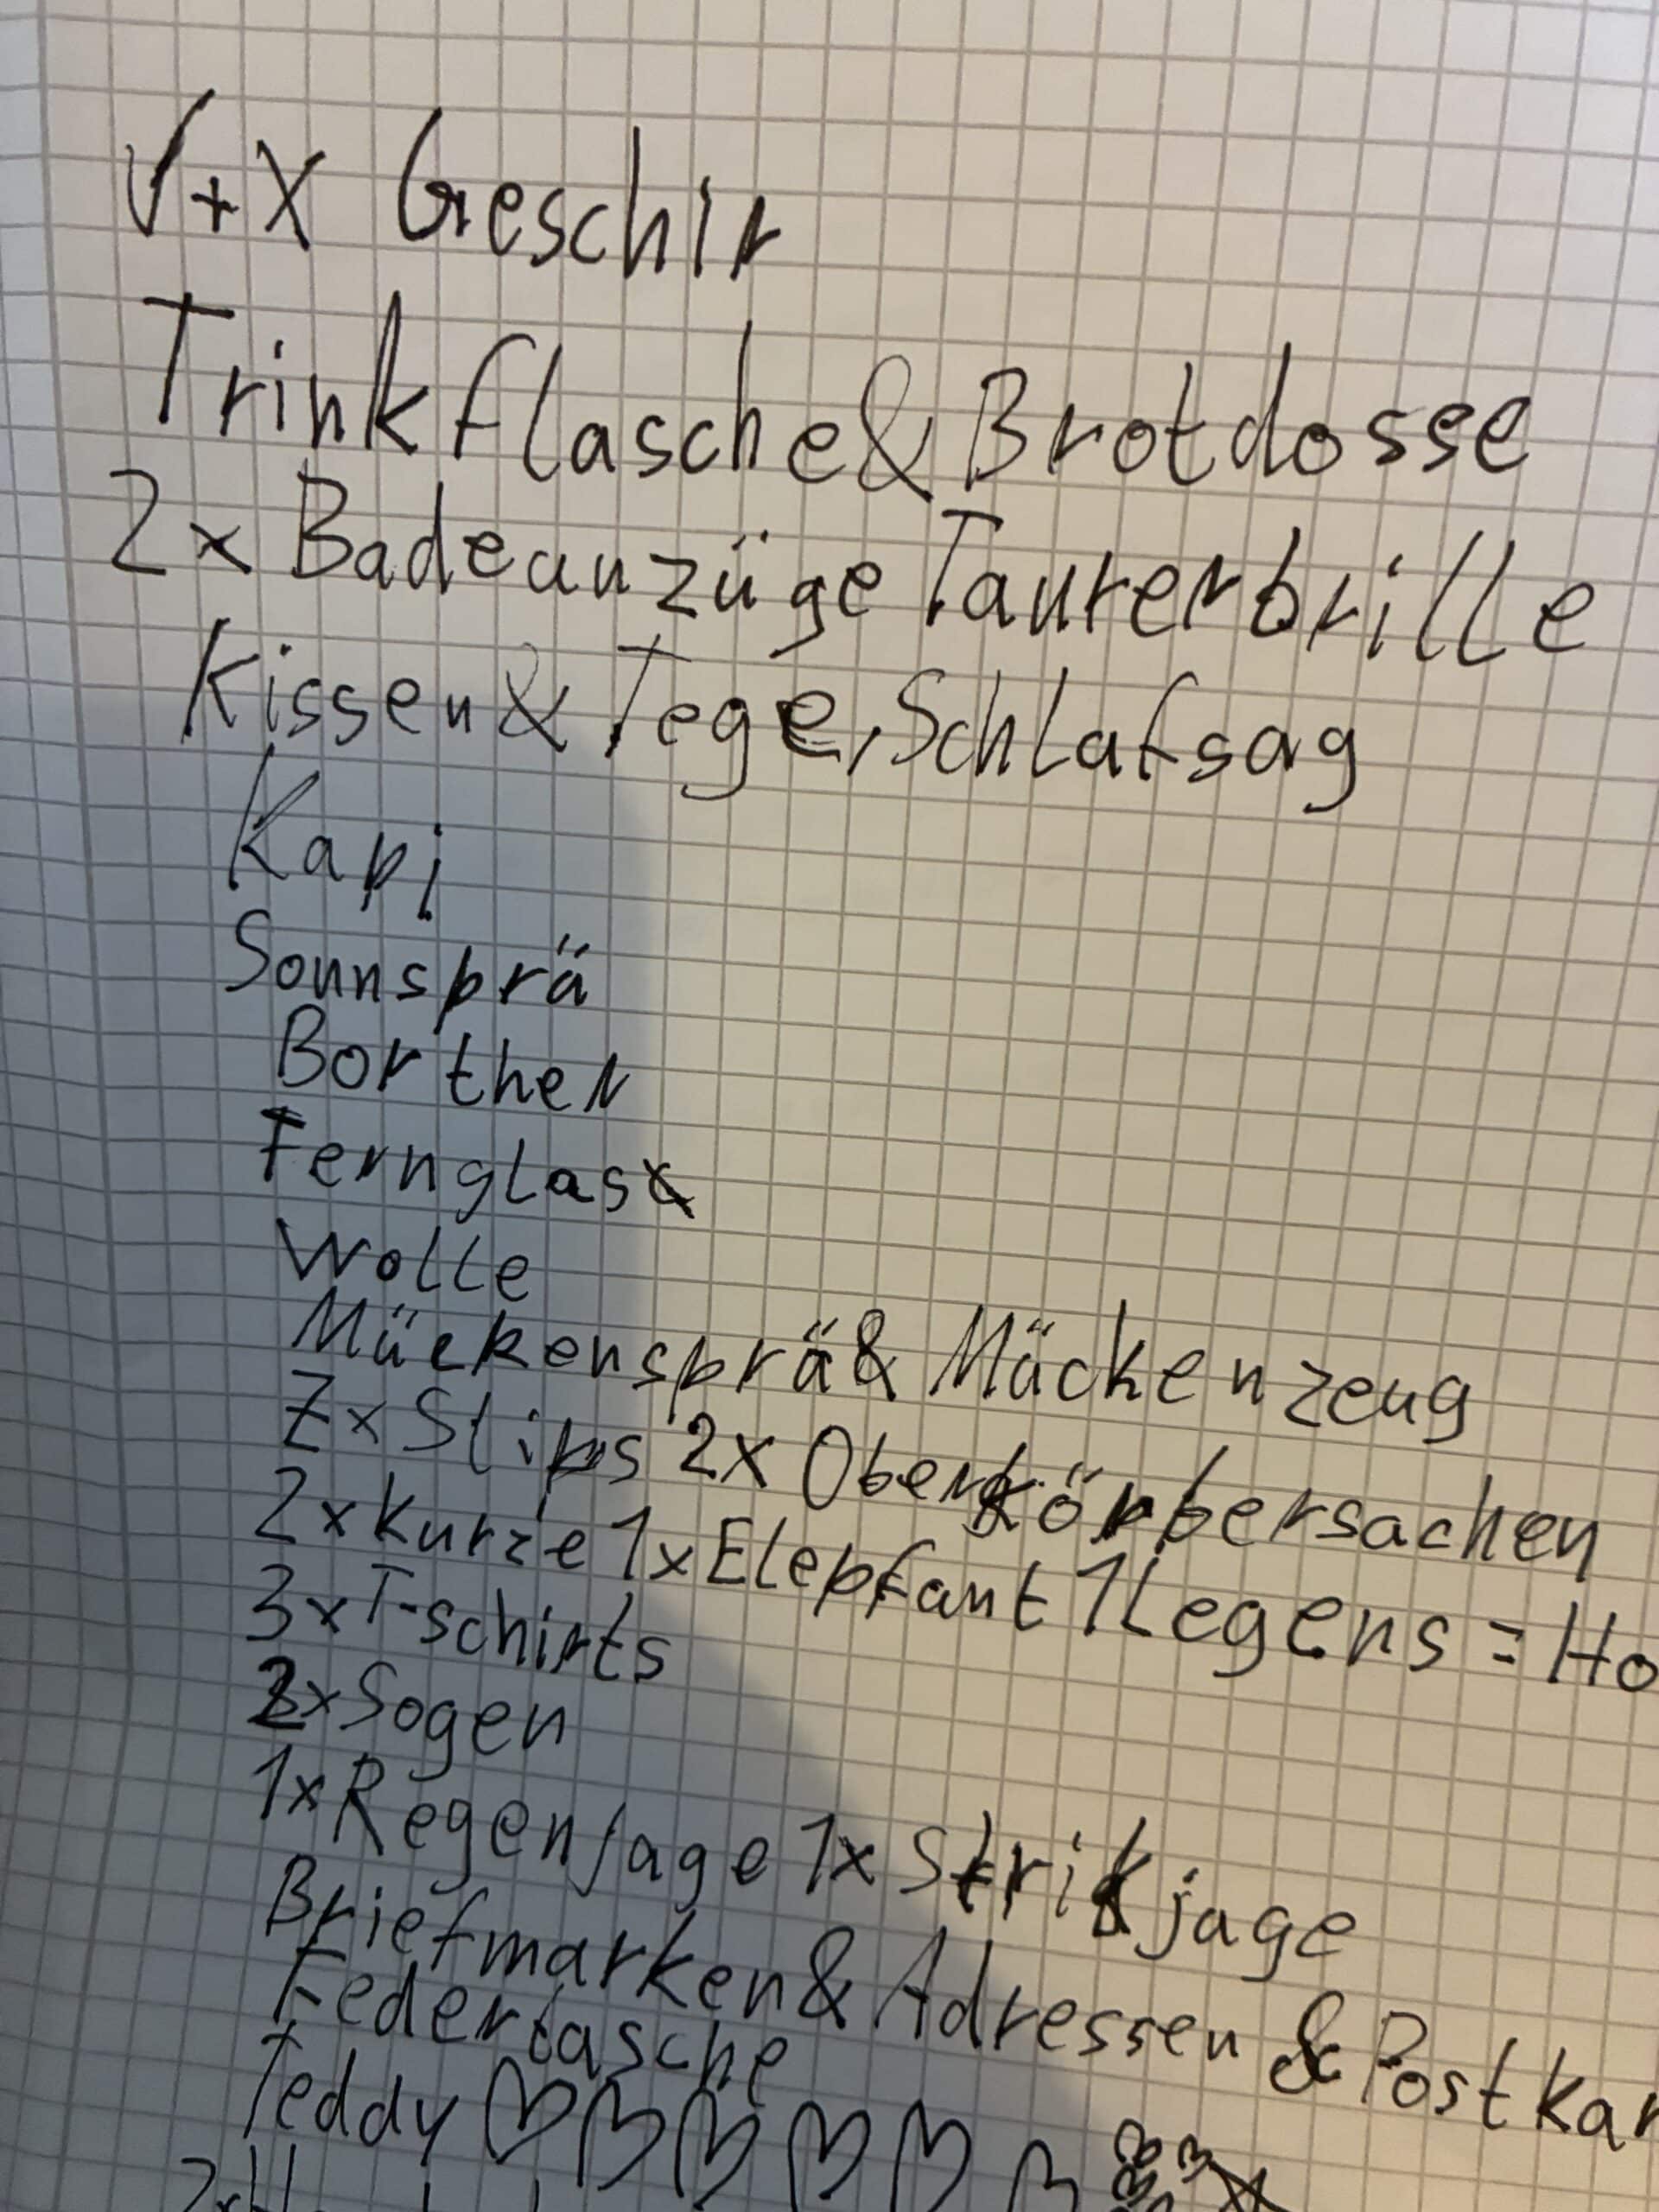 √+X Geschir
Trinkflasche&Brotdosse
2x Badeanzüge Taurerbrille
Kissen&Tege,Schlafsag
Kapi
Sonnsprä
Borther
Fernglas
Wolle
Mückensprä& Mückenzeug
7xSlips 2x Oberkörbersachen
2xkurze 1xElepfant 1Legens = Ho
3xT-schirts
2xSogen
1xRegenjage 1xStrikjage
Briefmarken&Adressen & Postkar
Federtasche
Teddy